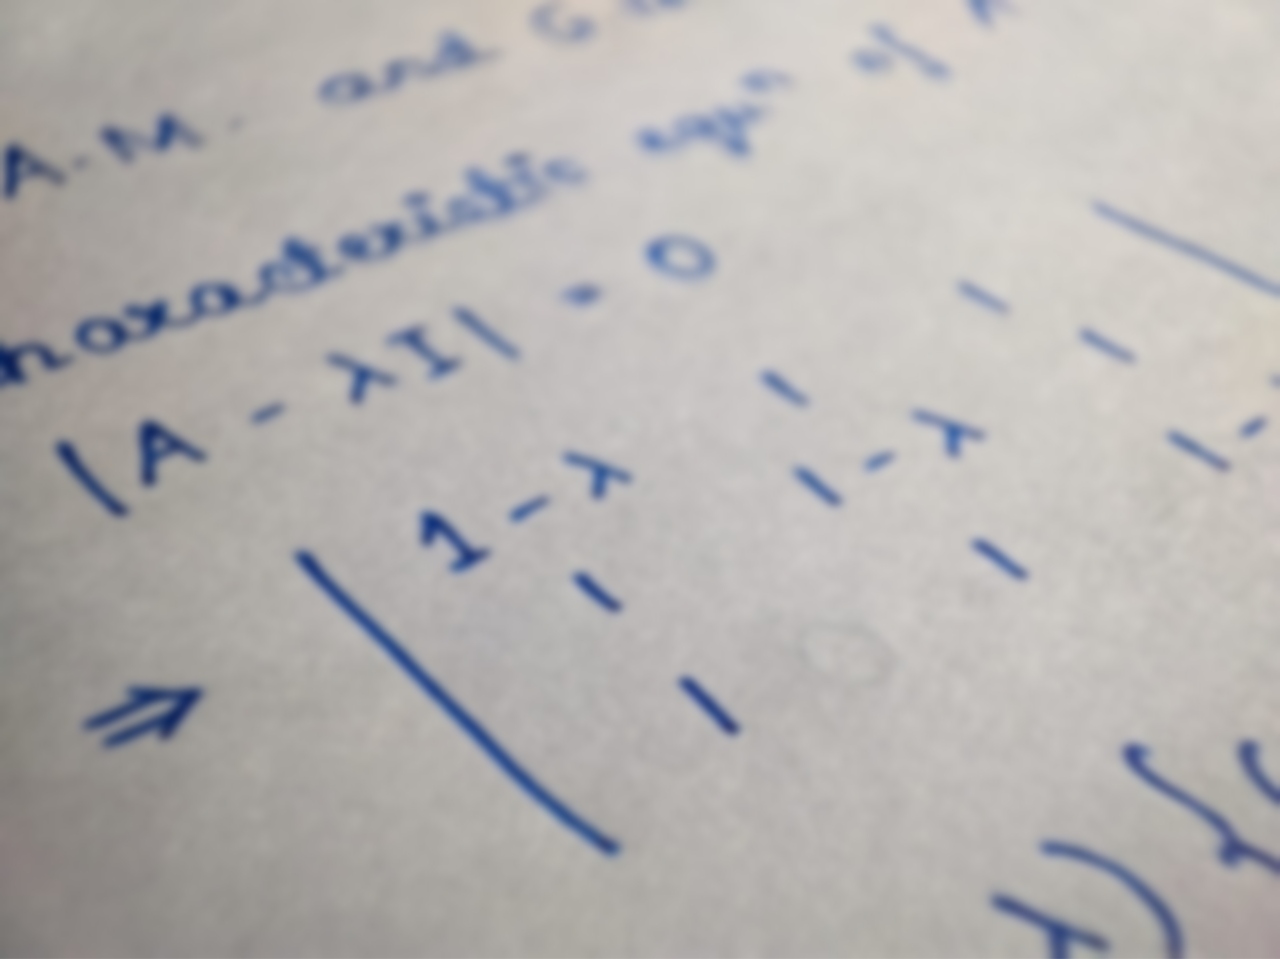 A.M. and G
haracteristic eqn of A
|A - λI| = 0
⇒ | 1-λ 1 1
1 1-λ 1
1 1 1-
λ)